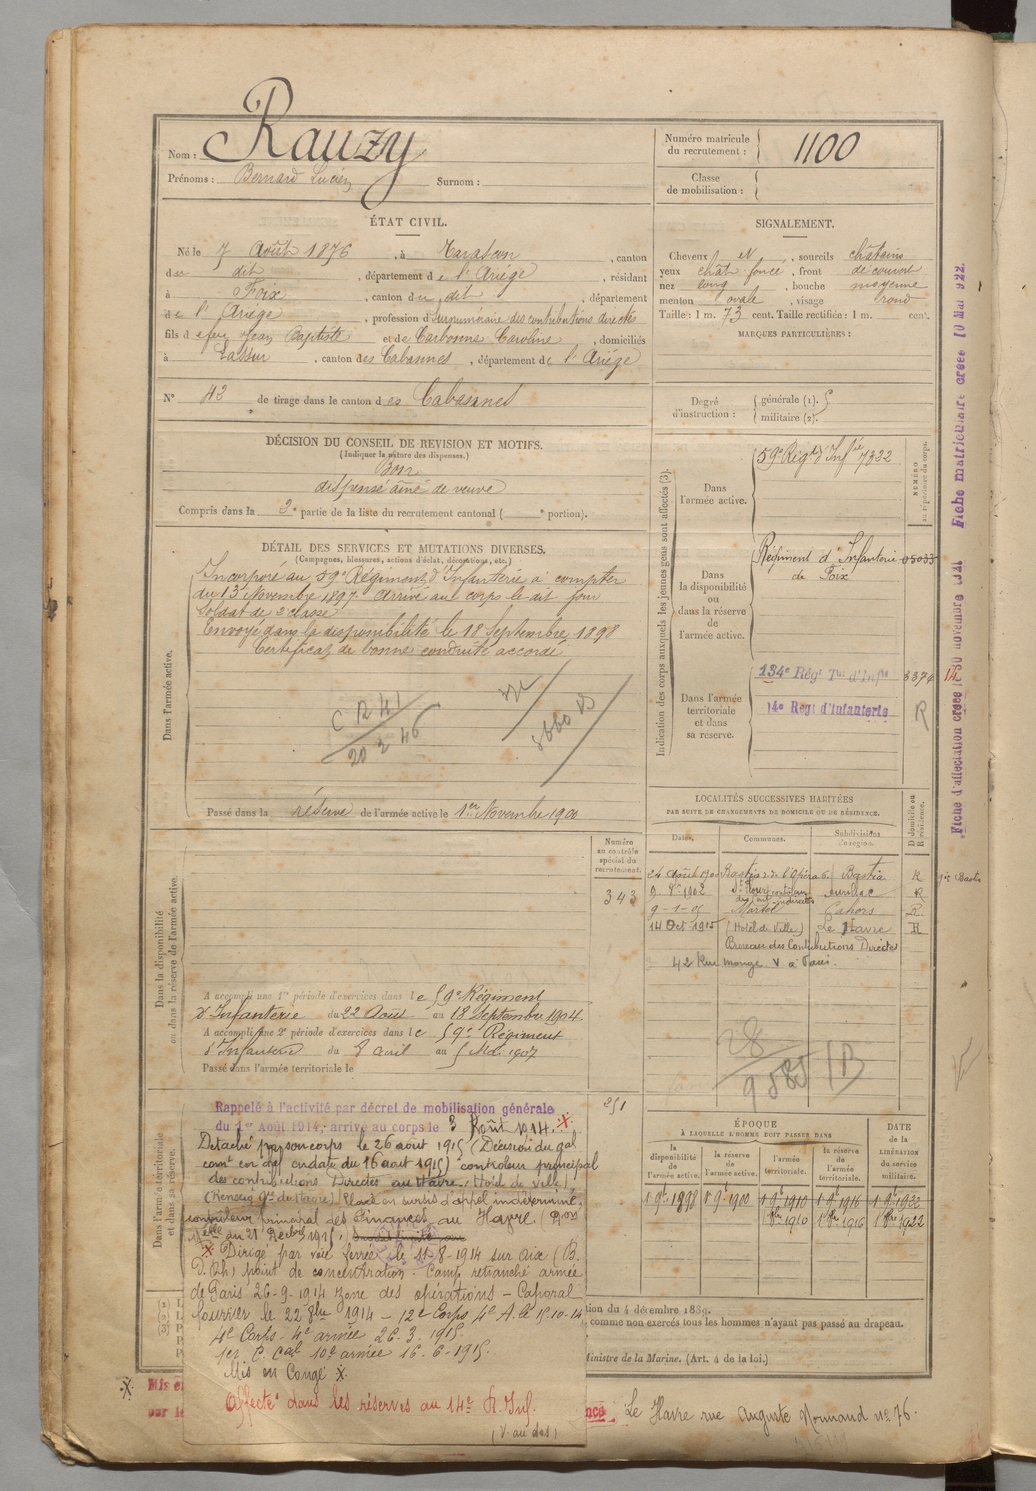 Nom : Rauzy
Prénoms : Bernard Lucien Surnom :
Numéro matricule
du recrutement : 1100
Classe
de mobilisation :
ÉTAT CIVIL.
Né le 7 Août 1876, à Tarascon, canton
du dit, département de l'Ariège, résidant
à Foix, canton du dit, département
de l'Ariège, profession de surnuméraire des contributions directes
fils de feu Jean Baptiste et de Carbonne Caroline, domiciliés
à Lassur, canton des Cabannes, département de l'Ariége
N° 43 de tirage dans le canton des Cabannes
SIGNALEMENT.
Cheveux N, sourcils châtains
yeux chât foncé, front découvert
nez long, bouche moyenne
menton ovale, visage rond
Taille : 1 m. 73 cent. Taille rectifiée : 1 m. cent.
MARQUES PARTICULIÈRES :
Degré
d'instruction :
générale (1).
militaire (2).
DÉCISION DU CONSEIL DE REVISION ET MOTIFS.
(Indiquer la nature des dispenses.)
Bon
dispensé aîné de veuve
Compris dans la 2e partie de la liste du recrutement cantonal ( e portion).
DÉTAIL DES SERVICES ET MUTATIONS DIVERSES.
(Campagnes, blessures, actions d'éclat, décorations, etc.)
Dans l'armée active.
Incorporé au 59e Régiment d'Infanterie à compter
du 13 Novembre 1897. Arrivé au corps le dit jour
Soldat de 2e classe
Envoyé dans la disponibilité le 18 Septembre 1898
Certificat de bonne conduite accordé
C R 41
20 2 46
Passé dans la réserve de l'armée active le 1er Novembre 1900
Indication des corps auxquels les jeunes gens sont affectés (3).
NUMÉRO
au répertoire du corps.
Dans
l'armée active.
59e Régt d'Infie 7322
Dans
la disponibilité
ou
dans la réserve
de
l'armée active.
Régiment d'Infanterie 05033
de Foix
Dans l'armée
territoriale
et dans
sa réserve.
134e Régt Tal d'Infie 3374
14e Regt d'Infanterie R
14
Fiche d'affectation créée le 30 novembre 1921 Fiche matriculaire créée 10 Mai 1922.
LOCALITÉS SUCCESSIVES HABITÉES
PAR SUITE DE CHANGEMENTS DE DOMICILE OU DE RÉSIDENCE.
Dates. Communes. Subdivisions de région. D domicile ou R résidence.
24 Août 1901 Bastia r. de l'Opéra 6 Bastia R
1902 St Flour contrôleur des cont. indirectes Aurillac R
9-1-05 Martel Cahors R
14 Oct 1915 (Hôtel de Ville) Le Havre R
Bureau des Contributions Directes
42 Rue Monge V à Paris.
Numéro
au contrôle
spécial du
recrutement.
343
Dans la disponibilité
ou dans la réserve de l'armée active.
A accompli une 1re période d'exercices dans le 59e Régiment
d'Infanterie du 22 Août au 18 Septembre 1904.
A accompli une 2e période d'exercices dans le 59e Régiment
d'Infanterie du 8 avril au 5 Mai 1907
Passé dans l'armée territoriale le
251
Dans l'armée territoriale
et dans sa réserve.
Rappelé à l'activité par décret de mobilisation générale
du 1er Août 1914, arrivé au corps le 3 Août 1914. X
Détaché par son corps le 26 aout 1915 (Décision du gal
comt en date du 16 aout 1915) controleur principal
des contributions Directes au Havre. (Hotel de Ville)
Placé en sursis d'appel indéterminé,
controleur principal des Finances au Havre. (Don
Melle du 21 Décbre 1915.)
X Dirigé par voie ferrée le 11-8-1914 sur Aix (B.
D. Rh) point de concentration - Camp retranché armée
de Paris 26-9-1914 zone des opérations - Caporal
fourrier le 22 8bre 1914 - 12e Corps 4e A. le 15-10-14
4e Corps - 4e armée 26.3.1915
1er C. Cal 10e armée 16.6-1915.
Mis en Congé X.
Affecté dans les réserves au 14e R. Inf.
(V. au dos)
ÉPOQUE
À LAQUELLE L'HOMME DOIT PASSER DANS
la disponibilité de l'armée active. la réserve de l'armée active. l'armée territoriale. la réserve de l'armée territoriale. DATE de la LIBÉRATION du service militaire.
1 9bre 1898 1 9bre 1900 1 9bre 1910 1 9bre 1916 1 9bre 1922
1 8bre 1910 1 8bre 1916 1 8bre 1922
tion du 4 décembre 1889.
comme non exercés tous les hommes n'ayant pas passé au drapeau.
Ministre de la Marine. (Art. 4 de la loi.)
Mis e
par le
Le Havre rue Auguste Normand no 76.